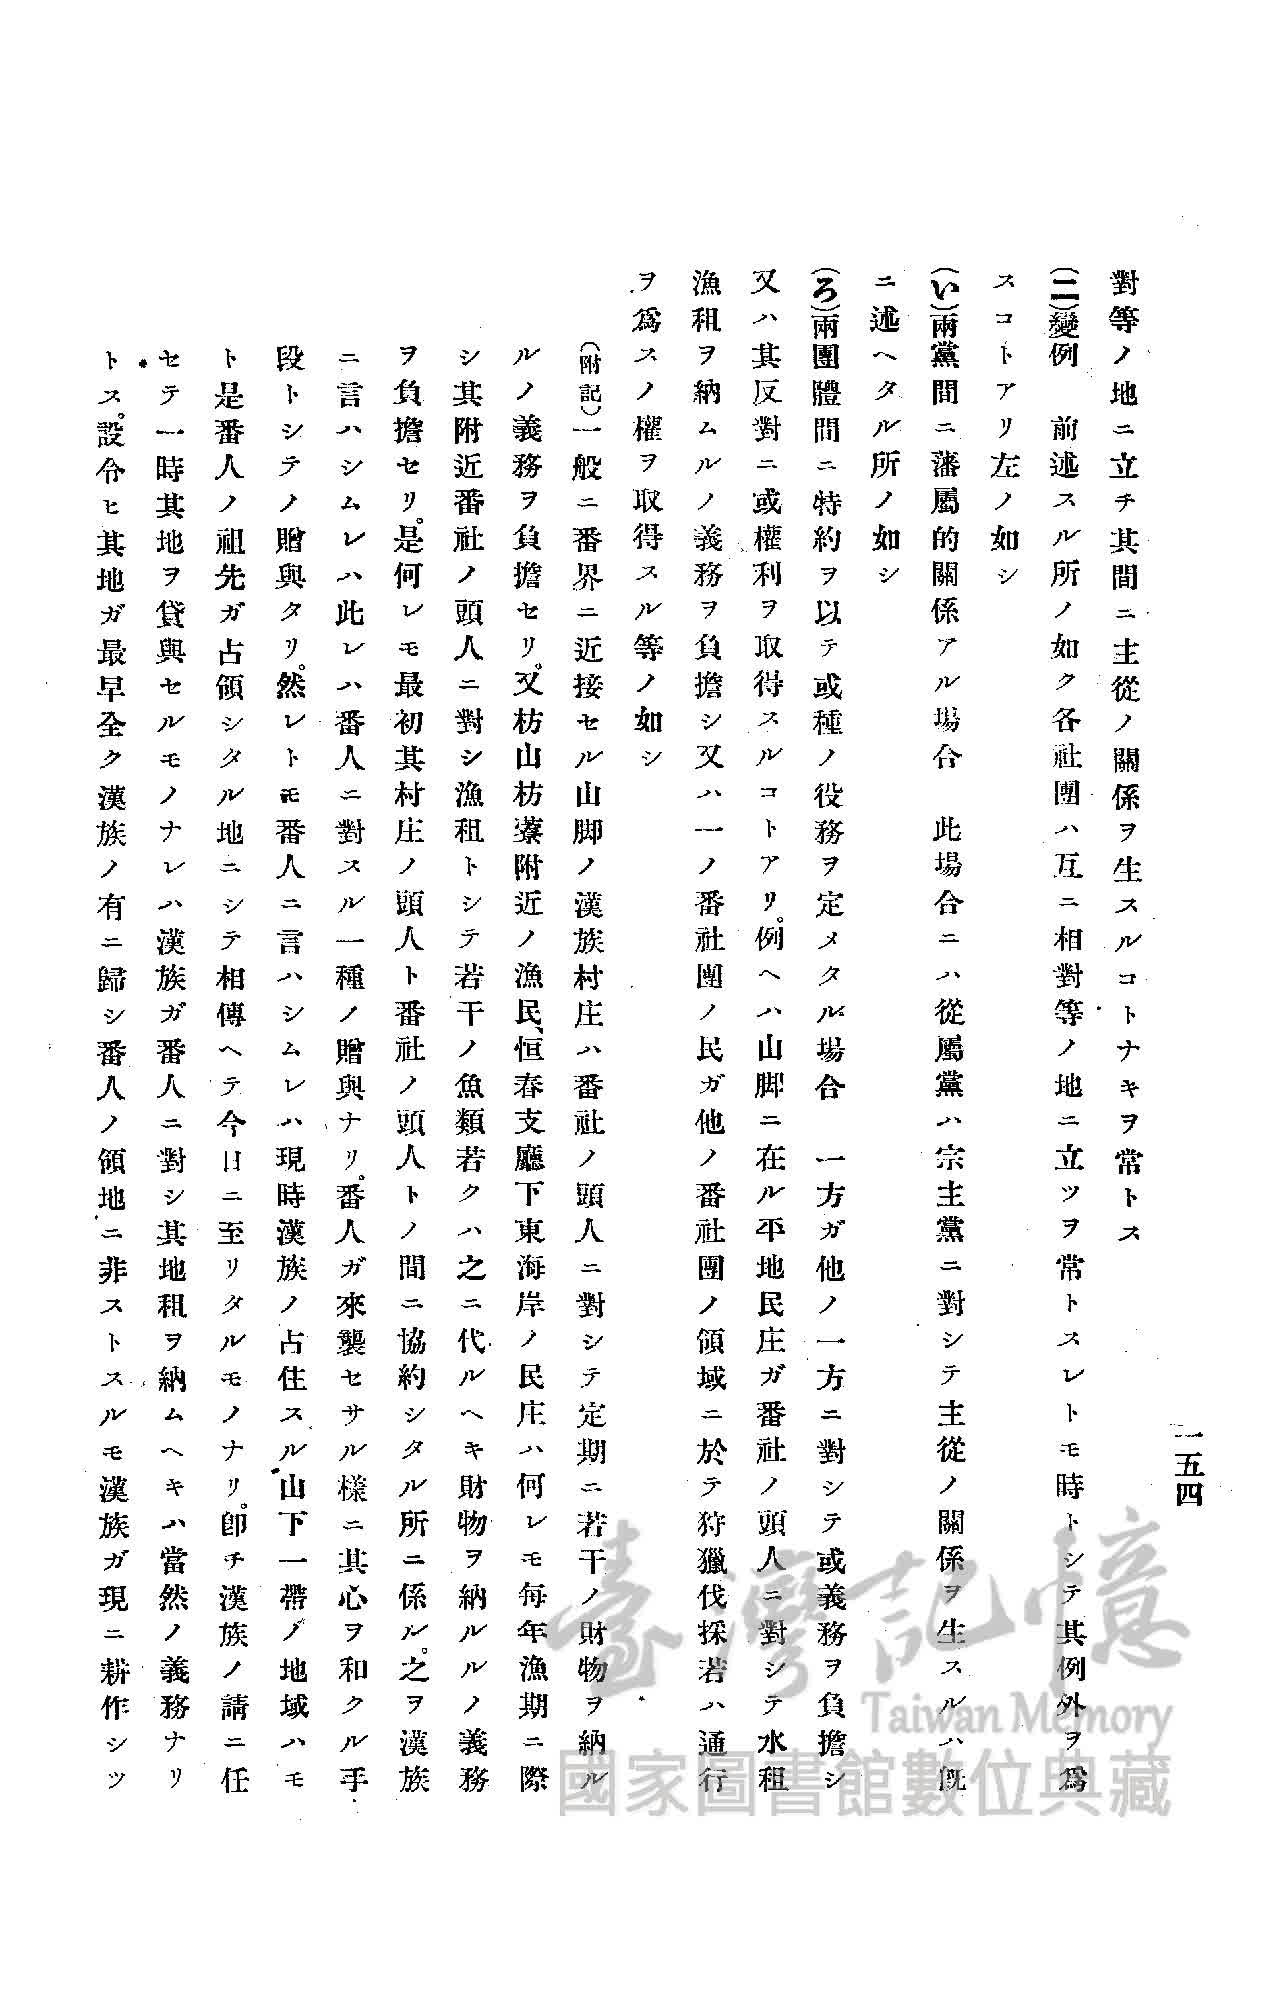 一五四
對等ノ地ニ立チ其間ニ主從ノ關係ヲ生スルコトナキヲ常トス
(二)變例　前述スル所ノ如ク各社團ハ互ニ相對等ノ地ニ立ツヲ常トスレトモ時トシテ其例外ヲ爲
スコトアリ左ノ如シ
(い)兩黨間ニ藩屬的關係アル場合　此場合ニハ從屬黨ハ宗主黨ニ對シテ主從ノ關係ヲ生スルハ既
ニ述ヘタル所ノ如シ
(ろ)兩團體間ニ特約ヲ以テ或種ノ役務ヲ定メタル場合　一方ガ他ノ一方ニ對シテ或義務ヲ負擔シ
又ハ其反對ニ或權利ヲ取得スルコトアリ。例ヘハ山脚ニ在ル平地民庄ガ番社ノ頭人ニ對シテ水租
漁租ヲ納ムルノ義務ヲ負擔シ又ハ一ノ番社團ノ民ガ他ノ番社團ノ領域ニ於テ狩獵伐採若ハ通行
ヲ爲スノ權ヲ取得スル等ノ如シ
(附記)一般ニ番界ニ近接セル山脚ノ漢族村庄ハ番社ノ頭人ニ對シテ定期ニ若干ノ財物ヲ納ル
ルノ義務ヲ負擔セリ。又枋山枋藔附近ノ漁民、恒春支廳下東海岸ノ民庄ハ何レモ每年漁期ニ際
シ其附近番社ノ頭人ニ對シ漁租トシテ若干ノ魚類若クハ之ニ代ルヘキ財物ヲ納ルルノ義務
ヲ負擔セリ。是何レモ最初其村庄ノ頭人ト番社ノ頭人トノ間ニ協約シタル所ニ係ル。之ヲ漢族
ニ言ハシムレハ此レハ番人ニ對スル一種ノ贈與ナリ。番人ガ來襲セサル樣ニ其心ヲ和クル手
段トシテノ贈與タリ。然レトモ番人ニ言ハシムレハ現時漢族ノ占住スル山下一帶ノ地域ハモ
ト是番人ノ祖先ガ占領シタル地ニシテ相傳ヘテ今日ニ至リタルモノナリ。卽チ漢族ノ請ニ任
セテ一時其地ヲ貸與セルモノナレハ漢族ガ番人ニ對シ其地租ヲ納ムヘキハ當然ノ義務ナリ
トス。設令ヒ其地ガ最早全ク漢族ノ有ニ歸シ番人ノ領地ニ非ストスルモ漢族ガ現ニ耕作シツ
臺灣記憶
Taiwan Memory
國家圖書館數位典藏